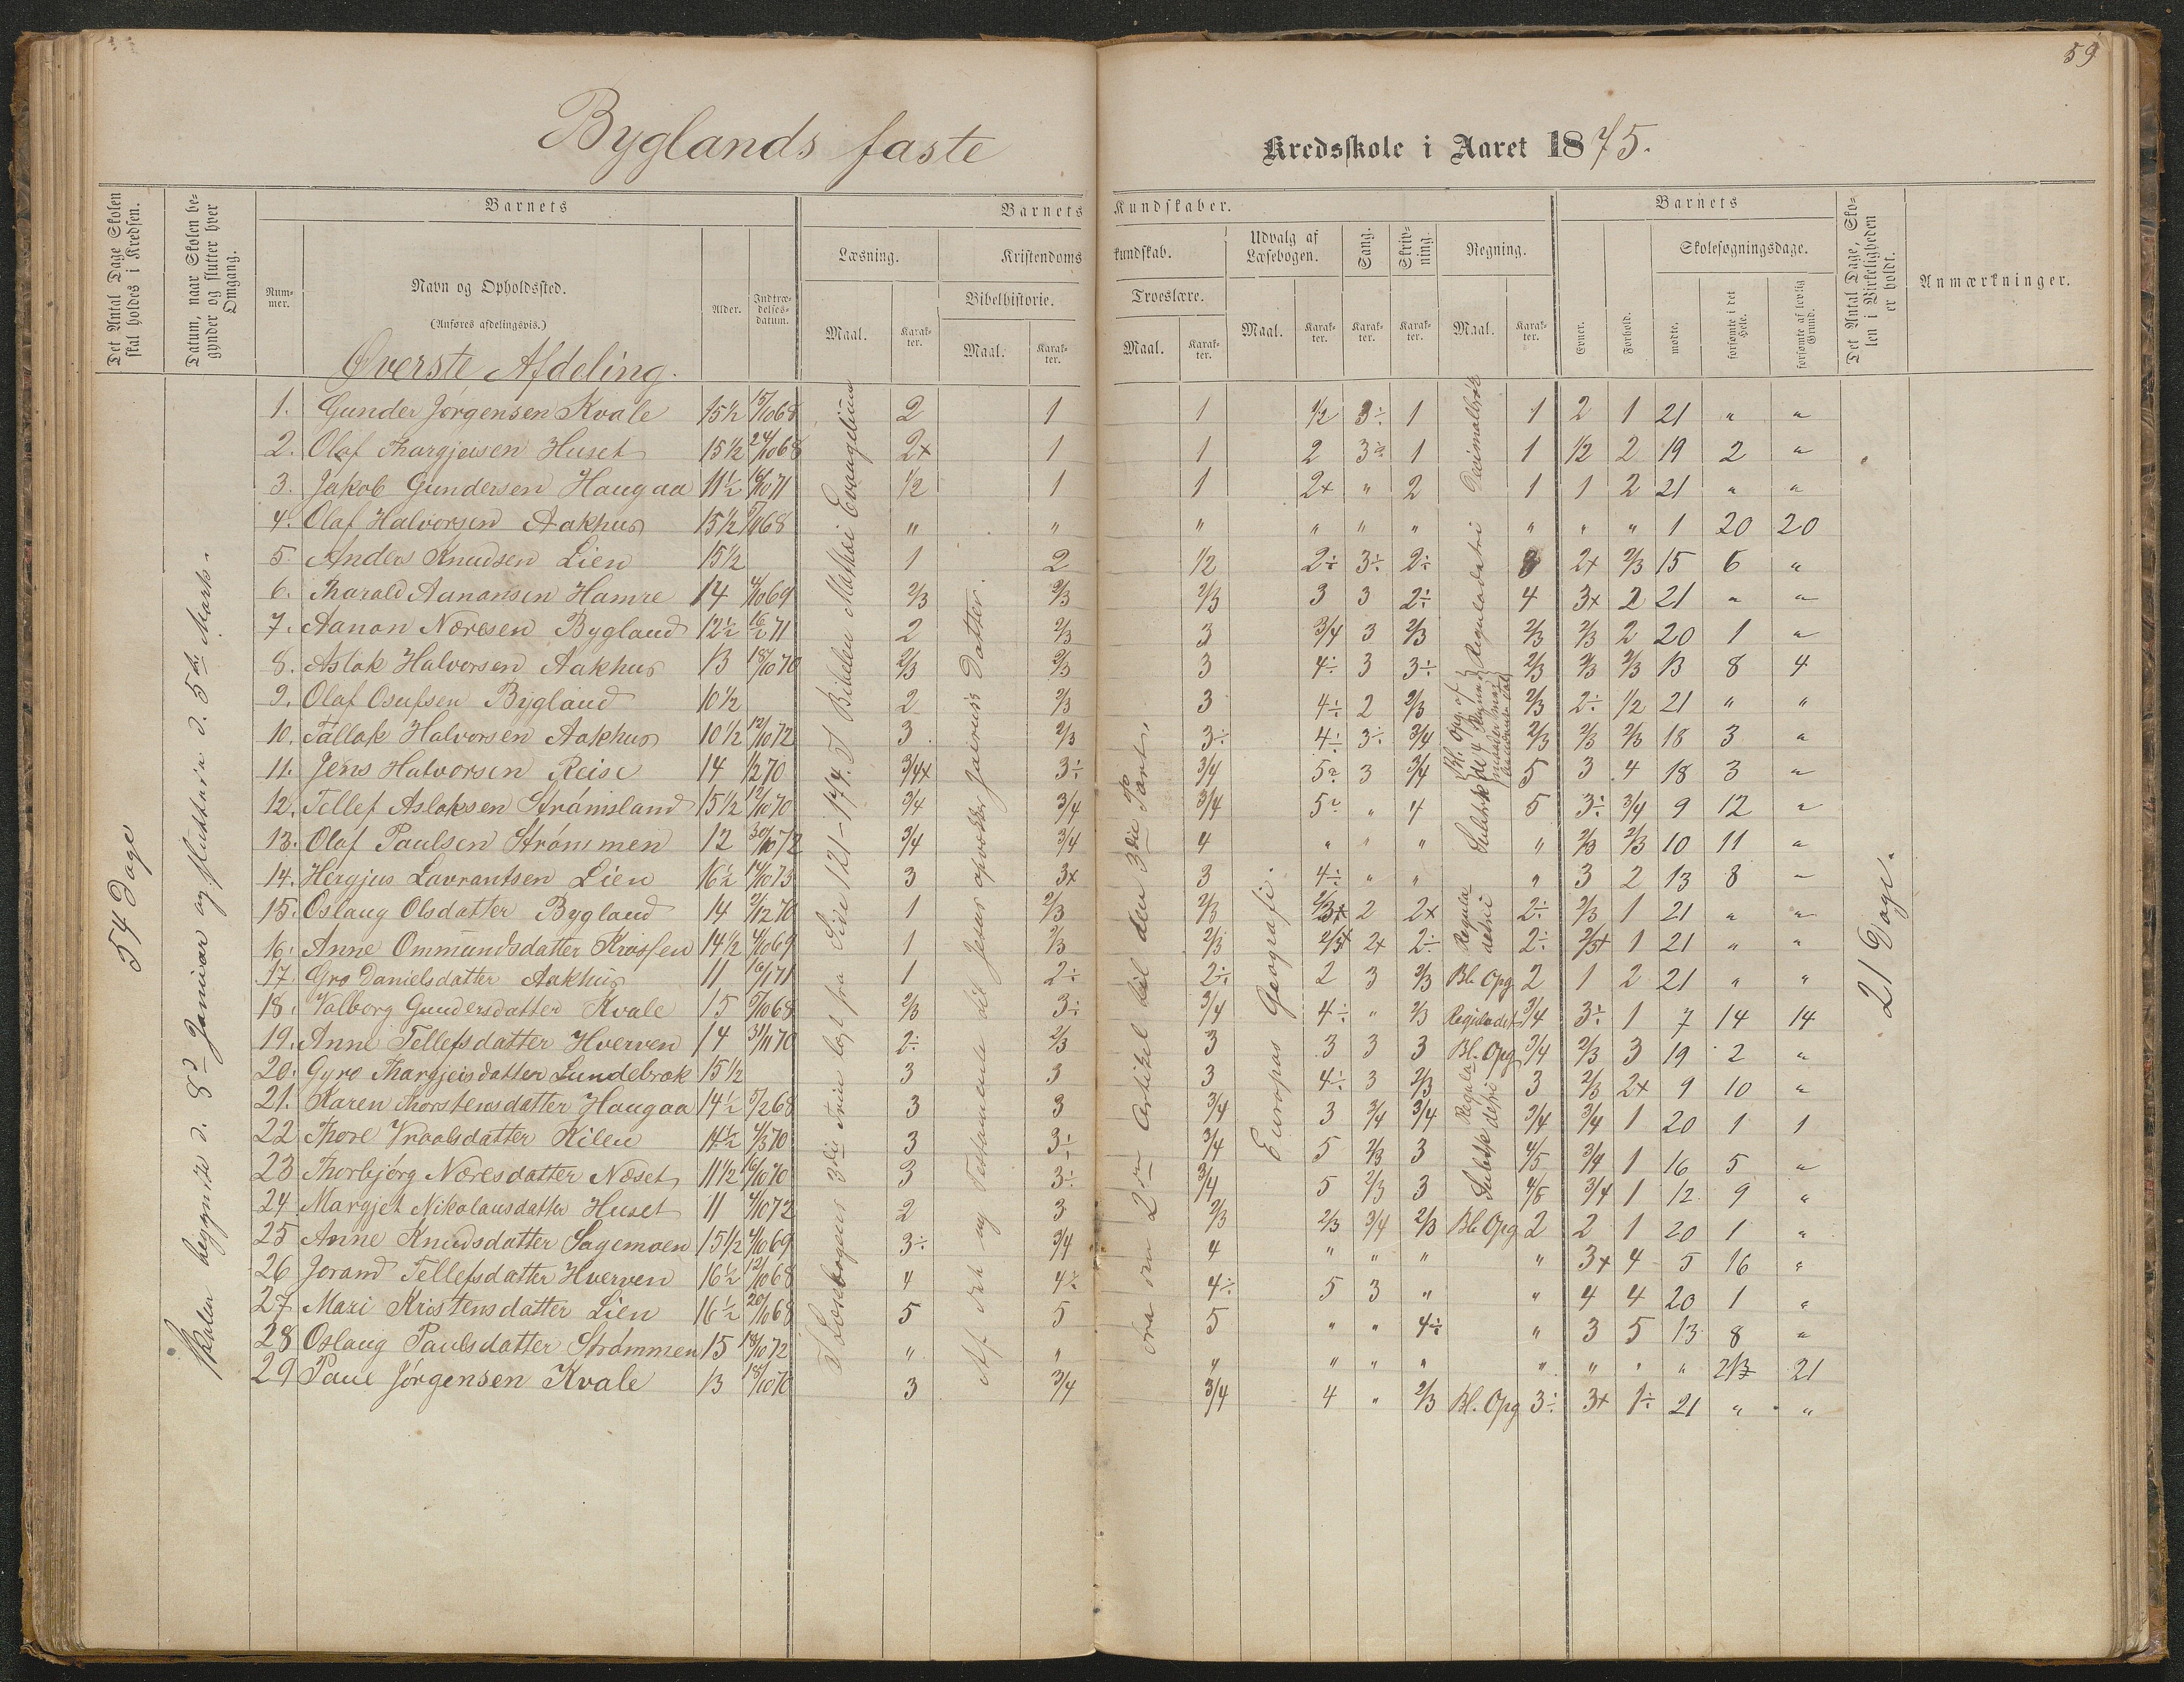 59
Byglands faste Kredsskole i Aaret 1875.
Det Antal Dage Skolen skal holdes i Kredsen.
Datum, naar Skolen begynder og slutter hver Omgang.
Barnets
Nummer.
Navn og Opholdssted.
(Anføres afdelingsvis.)
Alder.
Indtrædelsesdatum.
Barnets Kundskaber.
Læsning.
Maal.
Karakter.
Kristendomskundskab.
Bibelhistorie.
Maal.
Karakter.
Troeslære.
Maal.
Karakter.
Udvalg af Læsebogen.
Maal.
Karakter.
Sang.
Karakter.
Skrivning.
Karakter.
Regning.
Maal.
Karakter.
Barnets
Evner.
Forhold.
Skolesøgningsdage.
mødte.
forsømte i det Hele.
forsømte af lovlig Grund.
Det Antal Dage, Skolen i Virkeligheden er holdt.
Anmærkninger.
Øverste Afdeling.
54 Dage
Skolen begyndte d. 8d Januar og sluttede d. 5te Marts.
I Læsebogens 3die Side 121-174. I Bibelen Matthæi Evangelium
Jesus opvækker Jairus's Datter.
2den Artikel til den 3die Part.
Europas Geografi.
Decimalbrøk
Reguladetri
21 Dage.
1. Gunder Jørgensen Kvale 15½ 15/10 68 2 1 1 1/2 3÷ 1 1 2 1 21 " "
2. Olaf Thargjeisen Huset 15½ 24/10 68 2x 1 1 2 3÷ 1 1 1/2 2 19 2 "
3. Jakob Gundersen Haugaa 11½ 16/10 71 1/2 1 1 2x " 2 1 1 2 21 " "
4. Olaf Halvorsen Aakhus 15½ 68 " " " " " " " " " 1 20 20
5. Anders Knudsen Lien 15½ 1 2 1/2 2÷ 3÷ 2÷ 3 2x 2/3 15 6 "
6. Tharald Aanansen Hamre 14 4/10 69 2/3 2/3 2/3 3 3 2÷ 4 3x 2 21 " "
7. Aanon Næresen Bygland 12½ 16/2 71 2 2/3 3 3/4 3 2/3 2/3 2/3 2 20 1 "
8. Aslak Halvorsen Aakhus 13 18/10 70 2/3 2/3 3 4÷ 3 3÷ 2/3 2/3 2/3 13 8 4
9. Olaf Osufsen Bygland 10½ 2 2/3 3 4÷ 2 2/3 2/3 2÷ 1/2 21 " "
10. Tallak Halvorsen Aakhus 10½ 12/10 72 3 2/3 3÷ 4÷ 3÷ 3/4 2/3 2/3 2/3 18 3 "
11. Jens Halvorsen Reise 14 70 3/4x 3÷ 3/4 5÷ 3 3/4 5 3 4 18 3 "
12. Tellef Aslaksen Strømsland 15½ 12/10 70 3/4 3/4 3/4 5÷ " 4 5 3÷ 3/4 9 12 "
13. Olaf Paulsen Strømmen 12 30/10 72 3/4 3/4 4 " " " " 2/3 2/3 10 11 "
14. Hergjus Lavrantsen Lien 16½ 14/10 73 3 3x 3 4÷ " " " 3 2 13 8 "
15. Oslaug Olsdatter Bygland 14 2/12 70 1 2/3 2/3 2/3x 2 2x Reguladetri 2÷ 2/3 1 21 " "
16. Anne Ommundsdatter Krossen 14½ 4/10 69 1 2/3 2/3 2/3x 2x 2÷ 2÷ 2/3x 1 21 " "
17. Gro Danielsdatter Aakhus 11 16/1 71 1 2÷ 2÷ 2 3 2/3 Bl. Opg 2 1 2 21 " "
18. Valborg Gundersdatter Kvale 15 5/10 68 2/3 3÷ 3/4 4÷ " 2/3 Reguladet 3/4 3÷ 1 7 14 14
19. Anne Tellefsdatter Hverven 14 31/11 70 2÷ 2/3 3 3 3 3 Bl. Opg 3/4 2/3 3 19 2 "
20. Gyro Thargjeisdatter Lundebrok 15½ 3 3 3 4÷ 3 2/3 3 2/3 2x 9 10 "
21. Karen Thorstensdatter Haugaa 14½ 5/2 68 3 3 3/4 3 3/4 3/4 3/4 3/4 1 20 1 1
22 Thore Vraalsdatter Kilen 14½ 4/3 70 3 3÷ 3/4 5 2/3 3 4/5 3/4 1 16 5 "
23 Thorbjørg Næresdatter Næset 11½ 16/10 70 3 3÷ 3/4 5 2/3 3 4/5 3/4 1 12 9 "
24 Margjet Nikolausdatter Huset 11 4/10 72 2 3 2/3 2/3 3/4 2/3 Bl. Opg 2 2 1 20 1 "
25 Anne Knudsdatter Sagemoen 15½ 4/10 69 3÷ 3/4 4 " " " " 3x 4 5 16 "
26 Jorand Tellefsdatter Hverven 16½ 12/10 68 4 4÷ 4÷ 5 3 " " 4 4 20 1 "
27 Mari Kristensdatter Lien 16½ 20/10 68 5 5 5 " " 4÷ " 3 5 13 8 "
28 Oslaug Paulsdatter Strømmen 15 18/10 72 " " " " " " " " " " 21 21
29 Paul Jørgensen Kvale 13 18/10 70 3 3/4 3/4 4 " 2/3 Bl. Opg 3÷ 3x 1÷ 21 " "